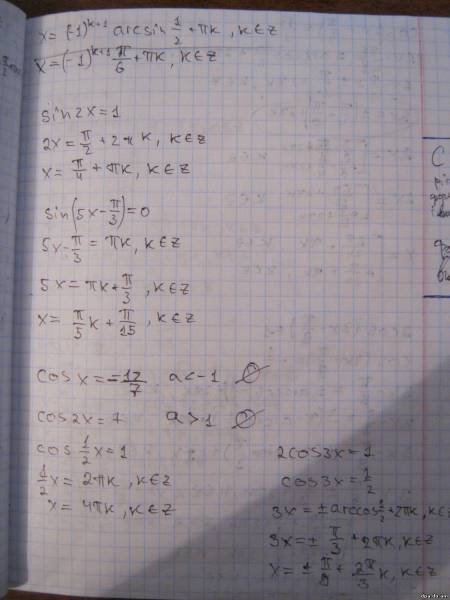 x = (-1)^{k+1} arcsin \frac{1}{2} + πk, k∈Z
x = (-1)^{k+1} \frac{π}{6} + πk, k∈Z
sin2x = 1
2x = \frac{π}{2} + 2πk, k∈Z
x = \frac{π}{4} + πk, k∈Z
sin(5x - \frac{π}{3}) = 0
5x - \frac{π}{3} = πk, k∈Z
5x = πk + \frac{π}{3}, k∈Z
x = \frac{π}{5}k + \frac{π}{15}, k∈Z
cosx = -\frac{12}{7} a < -1 ∅
cos2x = 7 a > 1 ∅
cos \frac{1}{2}x = 1
\frac{1}{2}x = 2πk, k∈Z
x = 4πk, k∈Z
2cos3x = 1
cos3x = \frac{1}{2}
3x = ± arccos\frac{1}{2} + 2πk, k∈Z
3x = ± \frac{π}{3} + 2πk, k∈Z
x = ± \frac{π}{9} + \frac{2π}{3}k, k∈Z